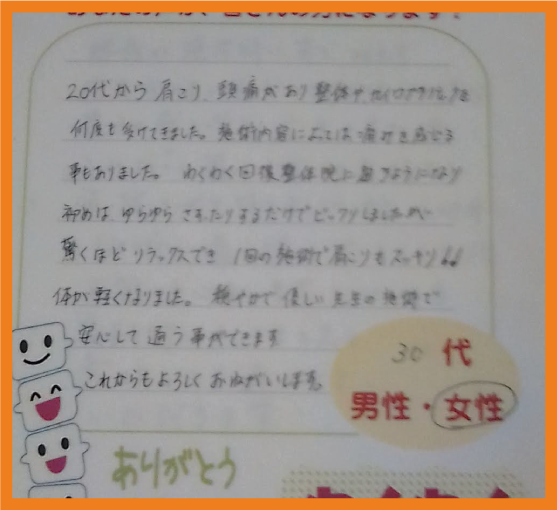 20代から 肩こり、頭痛があり 整体や カイロプラクティックを
何度も受けてきました。施術内容によっては 痛みを感じる
事もありました。 わくわく回復整体院に 通うようになり
初めは ゆらゆら さすったりするだけで ビックリしましたが
驚くほど リラックスでき 1回の施術で肩こりもスッキリ!!
体が 軽くなりました。 穏やかで 優しい 先生の 施術で
安心して 通う 事ができます
これからもよろしく おねがいします。
30 代
男性・女性
ありがとう